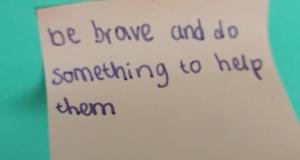 be brave and do
something to help
them